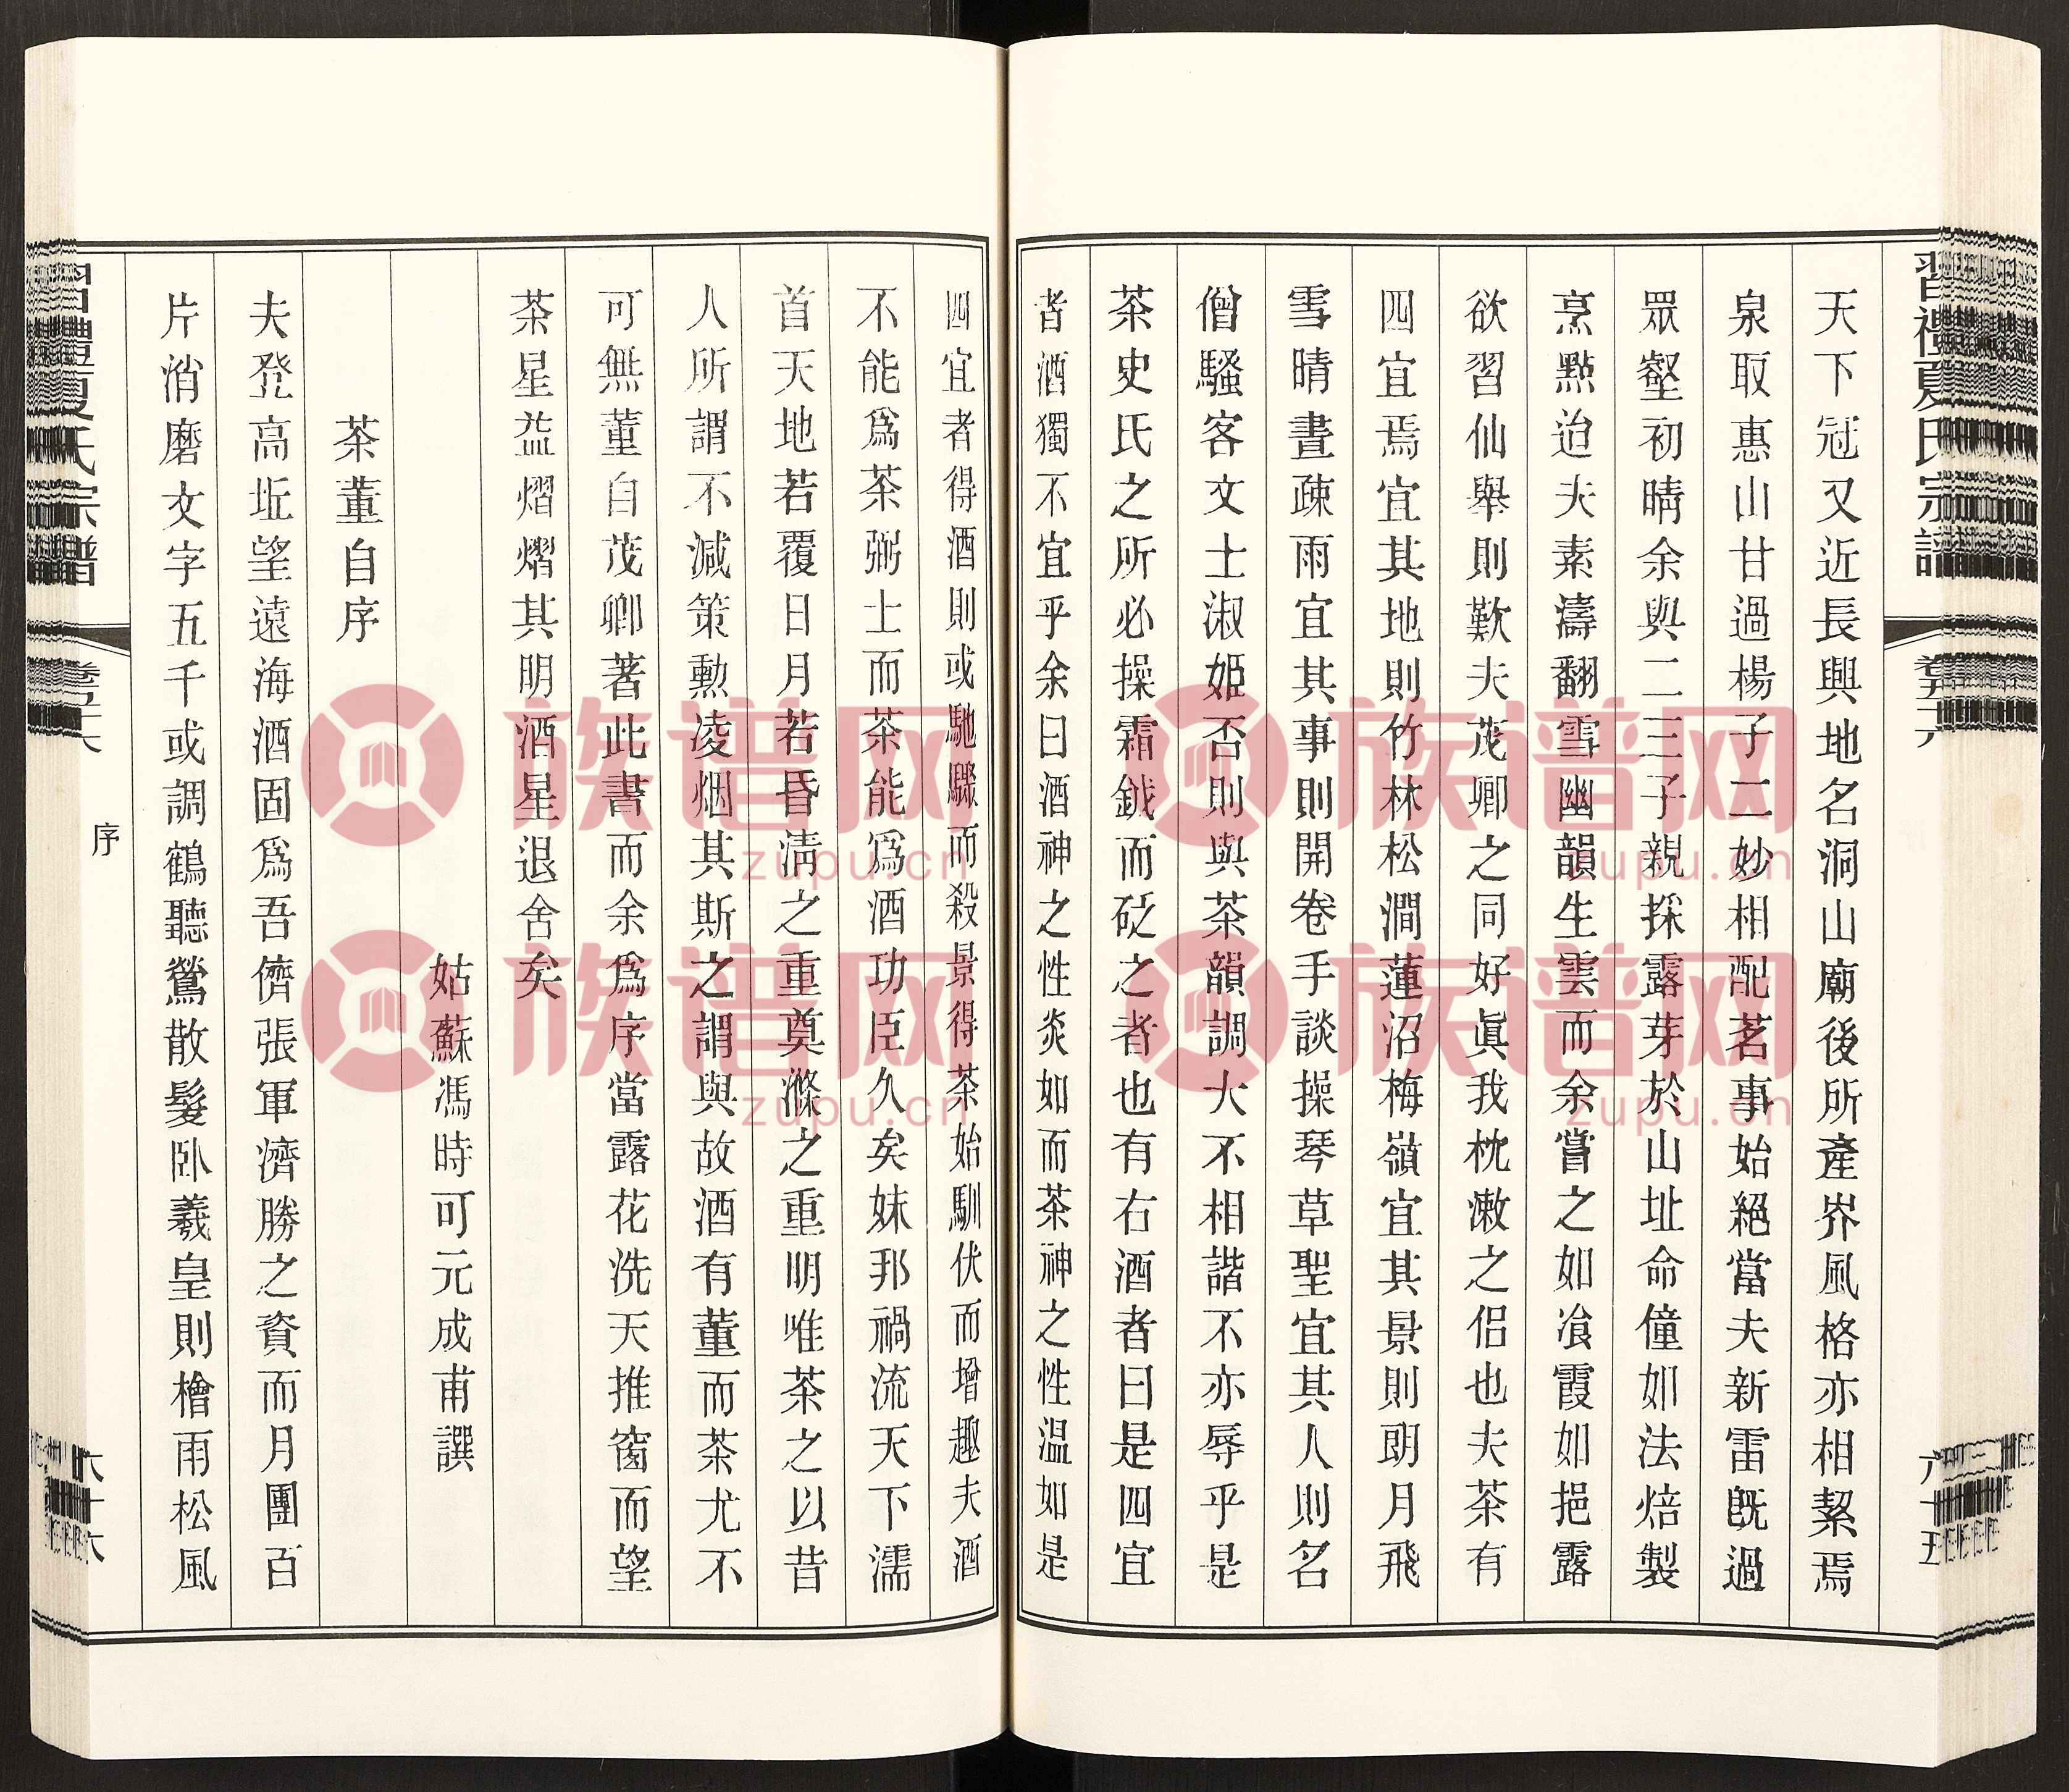 習禮夏氏宗譜
卷五十六
六十五
天下冠又近長興地名洞山廟後所產界風格亦相絜焉
泉取惠山甘過楊子二妙相配茗事始絕當夫新雷既過
眾壑初晴余與二三子親採露芽於山址命僮如法焙製
烹點迨夫素濤翻雪幽韻生雲而余嘗之如飡霞如挹露
欲習仙舉則歎夫茂卿之同好眞我枕漱之侶也夫茶有
四宜焉宜其地則竹林松澗蓮沼梅嶺宜其景則朗月飛
雪晴晝疎雨宜其事則開卷手談操琴草聖宜其人則名
僧騷客文士淑姬否則與茶韻調大不相諧不亦辱乎是
茶史氏之所必操霜鉞而砭之者也有右酒者曰是四宜
者酒獨不宜乎余曰酒神之性炎如而茶神之性温如是
四宜者得酒則或馳驟而殺景得茶始馴伏而增趣夫酒
不能爲茶弼士而茶能爲酒功臣久矣妹邦禍流天下濡
首天地若覆日月若昏清之重奠滌之重明唯茶之以昔
人所謂不減策勳凌烟其斯之謂與故酒有董而茶尤不
可無董自茂卿著此書而余爲序當露花洗天推窗而望
茶星益熠熠其明酒星退舍矣
姑蘇馮時可元成甫譔
茶董自序
夫登高坵望遠海酒固爲吾儕張軍濟勝之資而月團百
片消磨文字五千或調鶴聽鶯散髮卧羲皇則檜雨松風
習禮夏氏宗譜
卷五十六
序
六十六
族谱网
zupu.cn
族谱网
zupu.cn
族谱网
zupu.cn
族谱网
zupu.cn